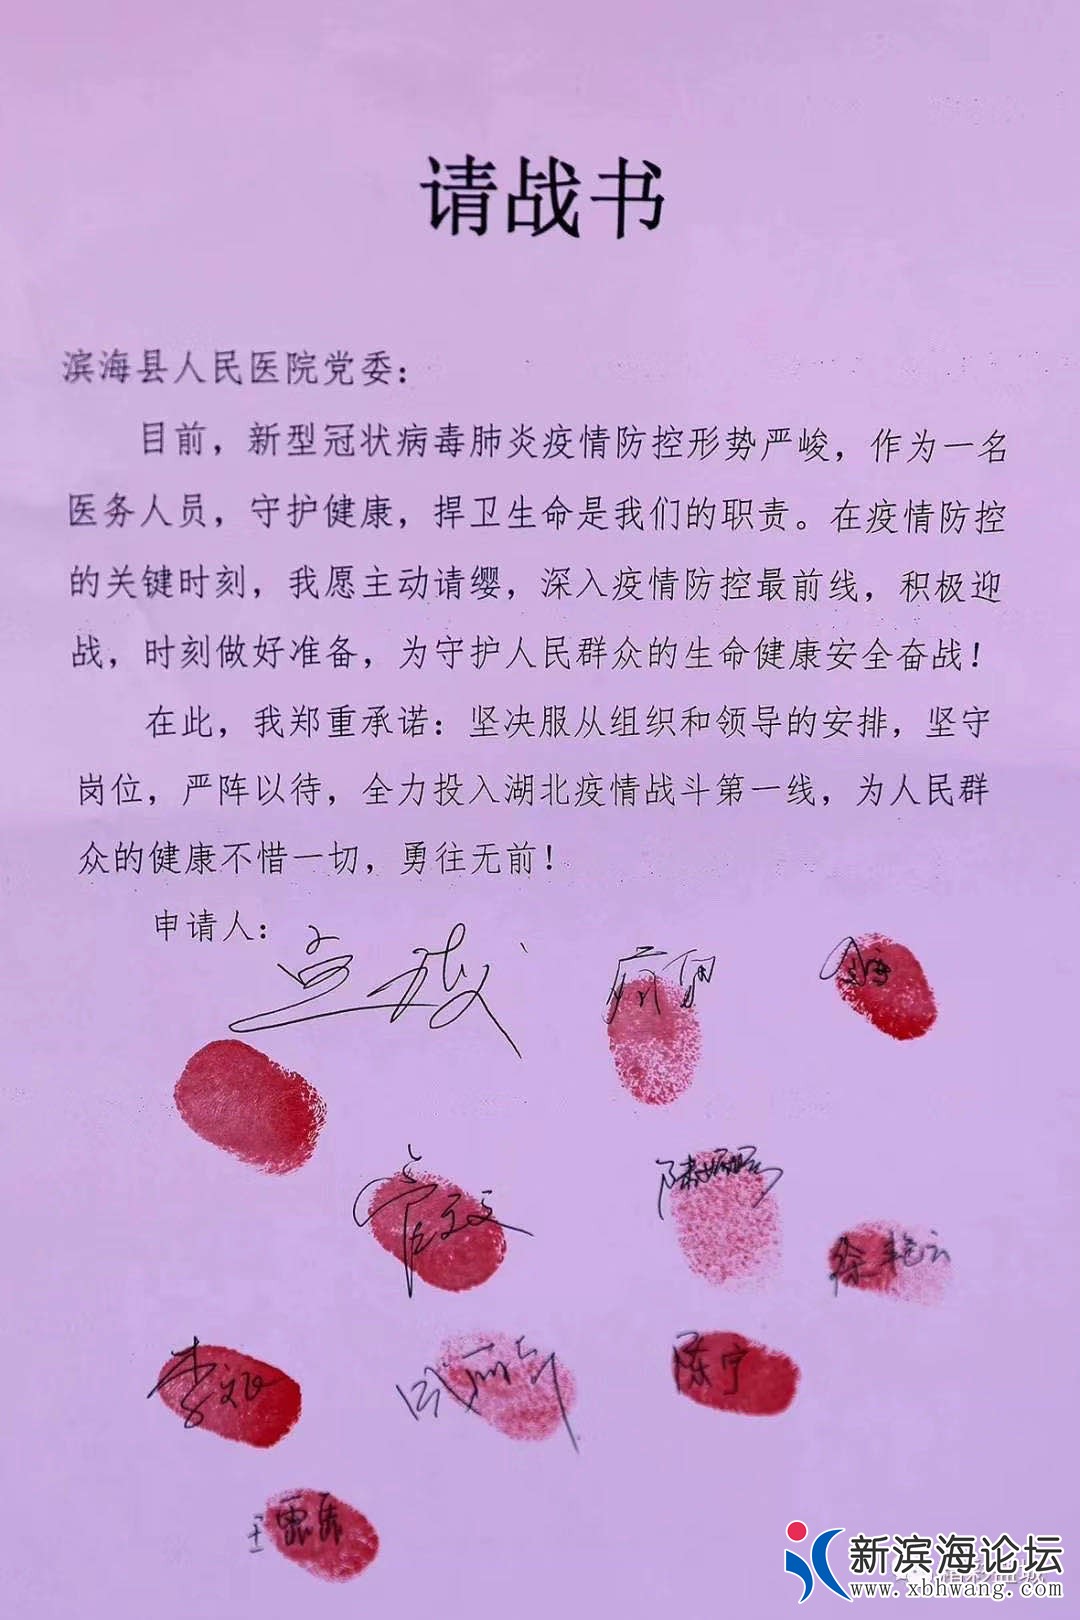 请战书
滨海县人民医院党委：
目前，新型冠状病毒肺炎疫情防控形势严峻，作为一名
医务人员，守护健康，捍卫生命是我们的职责。在疫情防控
的关键时刻，我愿主动请缨，深入疫情防控最前线，积极迎
战，时刻做好准备，为守护人民群众的生命健康安全奋战！
在此，我郑重承诺：坚决服从组织和领导的安排，坚守
岗位，严阵以待，全力投入湖北疫情战斗第一线，为人民群
众的健康不惜一切，勇往无前！
申请人：
徐艳云
陈宁
新滨海论坛
www.xbhwang.com